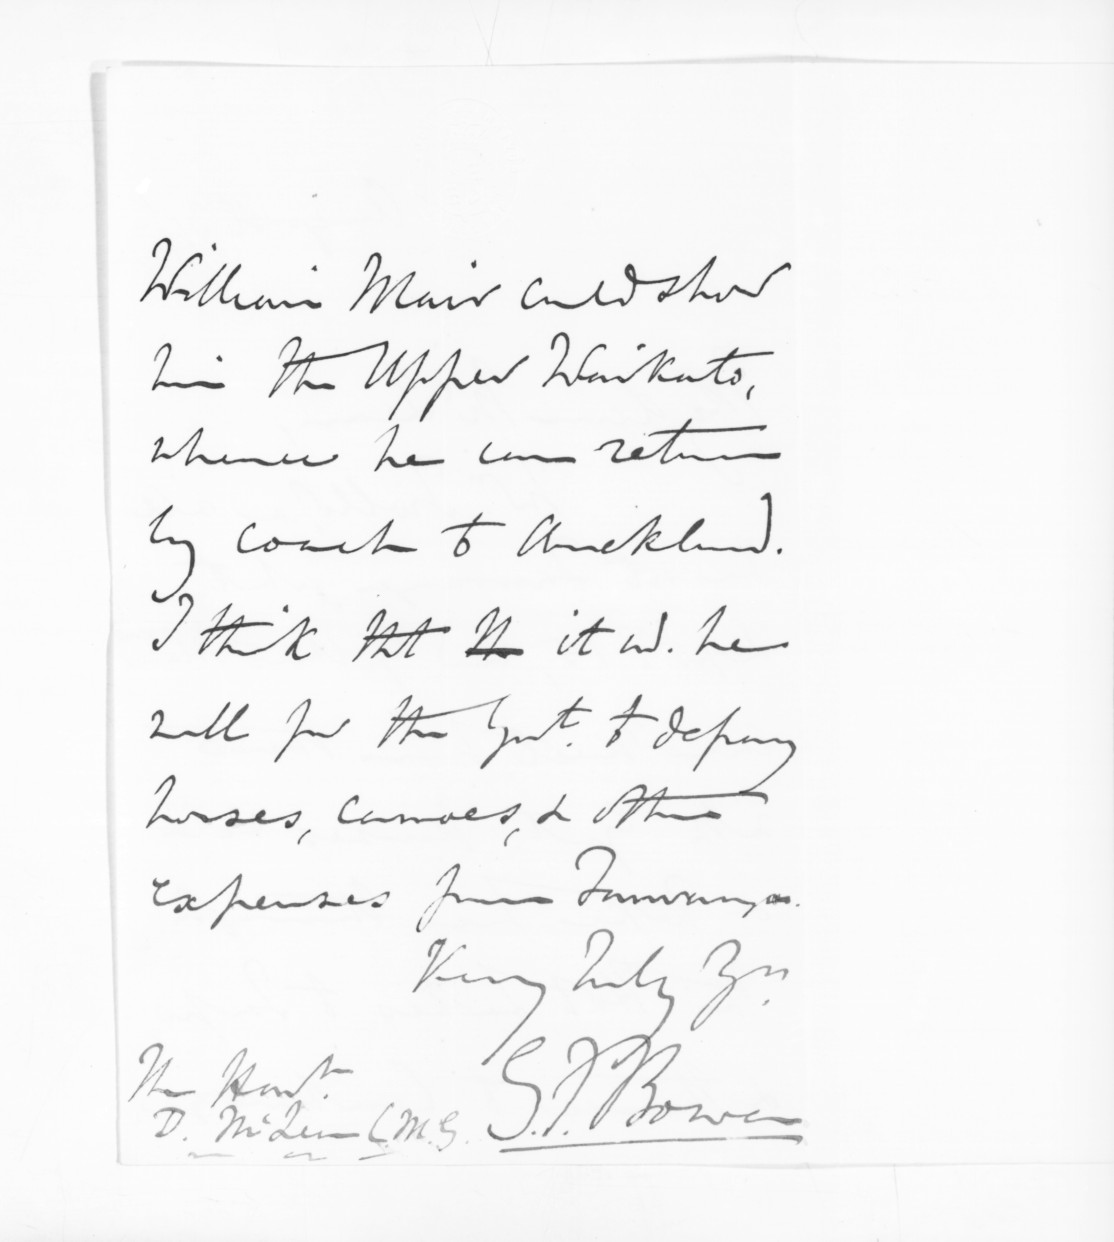 William Mair could show
him the Upper Waikato,
whence he can return
by coach to Auckland.
I think that it wd. be
well for the Govt. to defray
horses, canoes, & other
expenses from Tauranga.
Very Truly Yrs.
G. F. Bowen
The Honble.
D. McLean C.M.G.